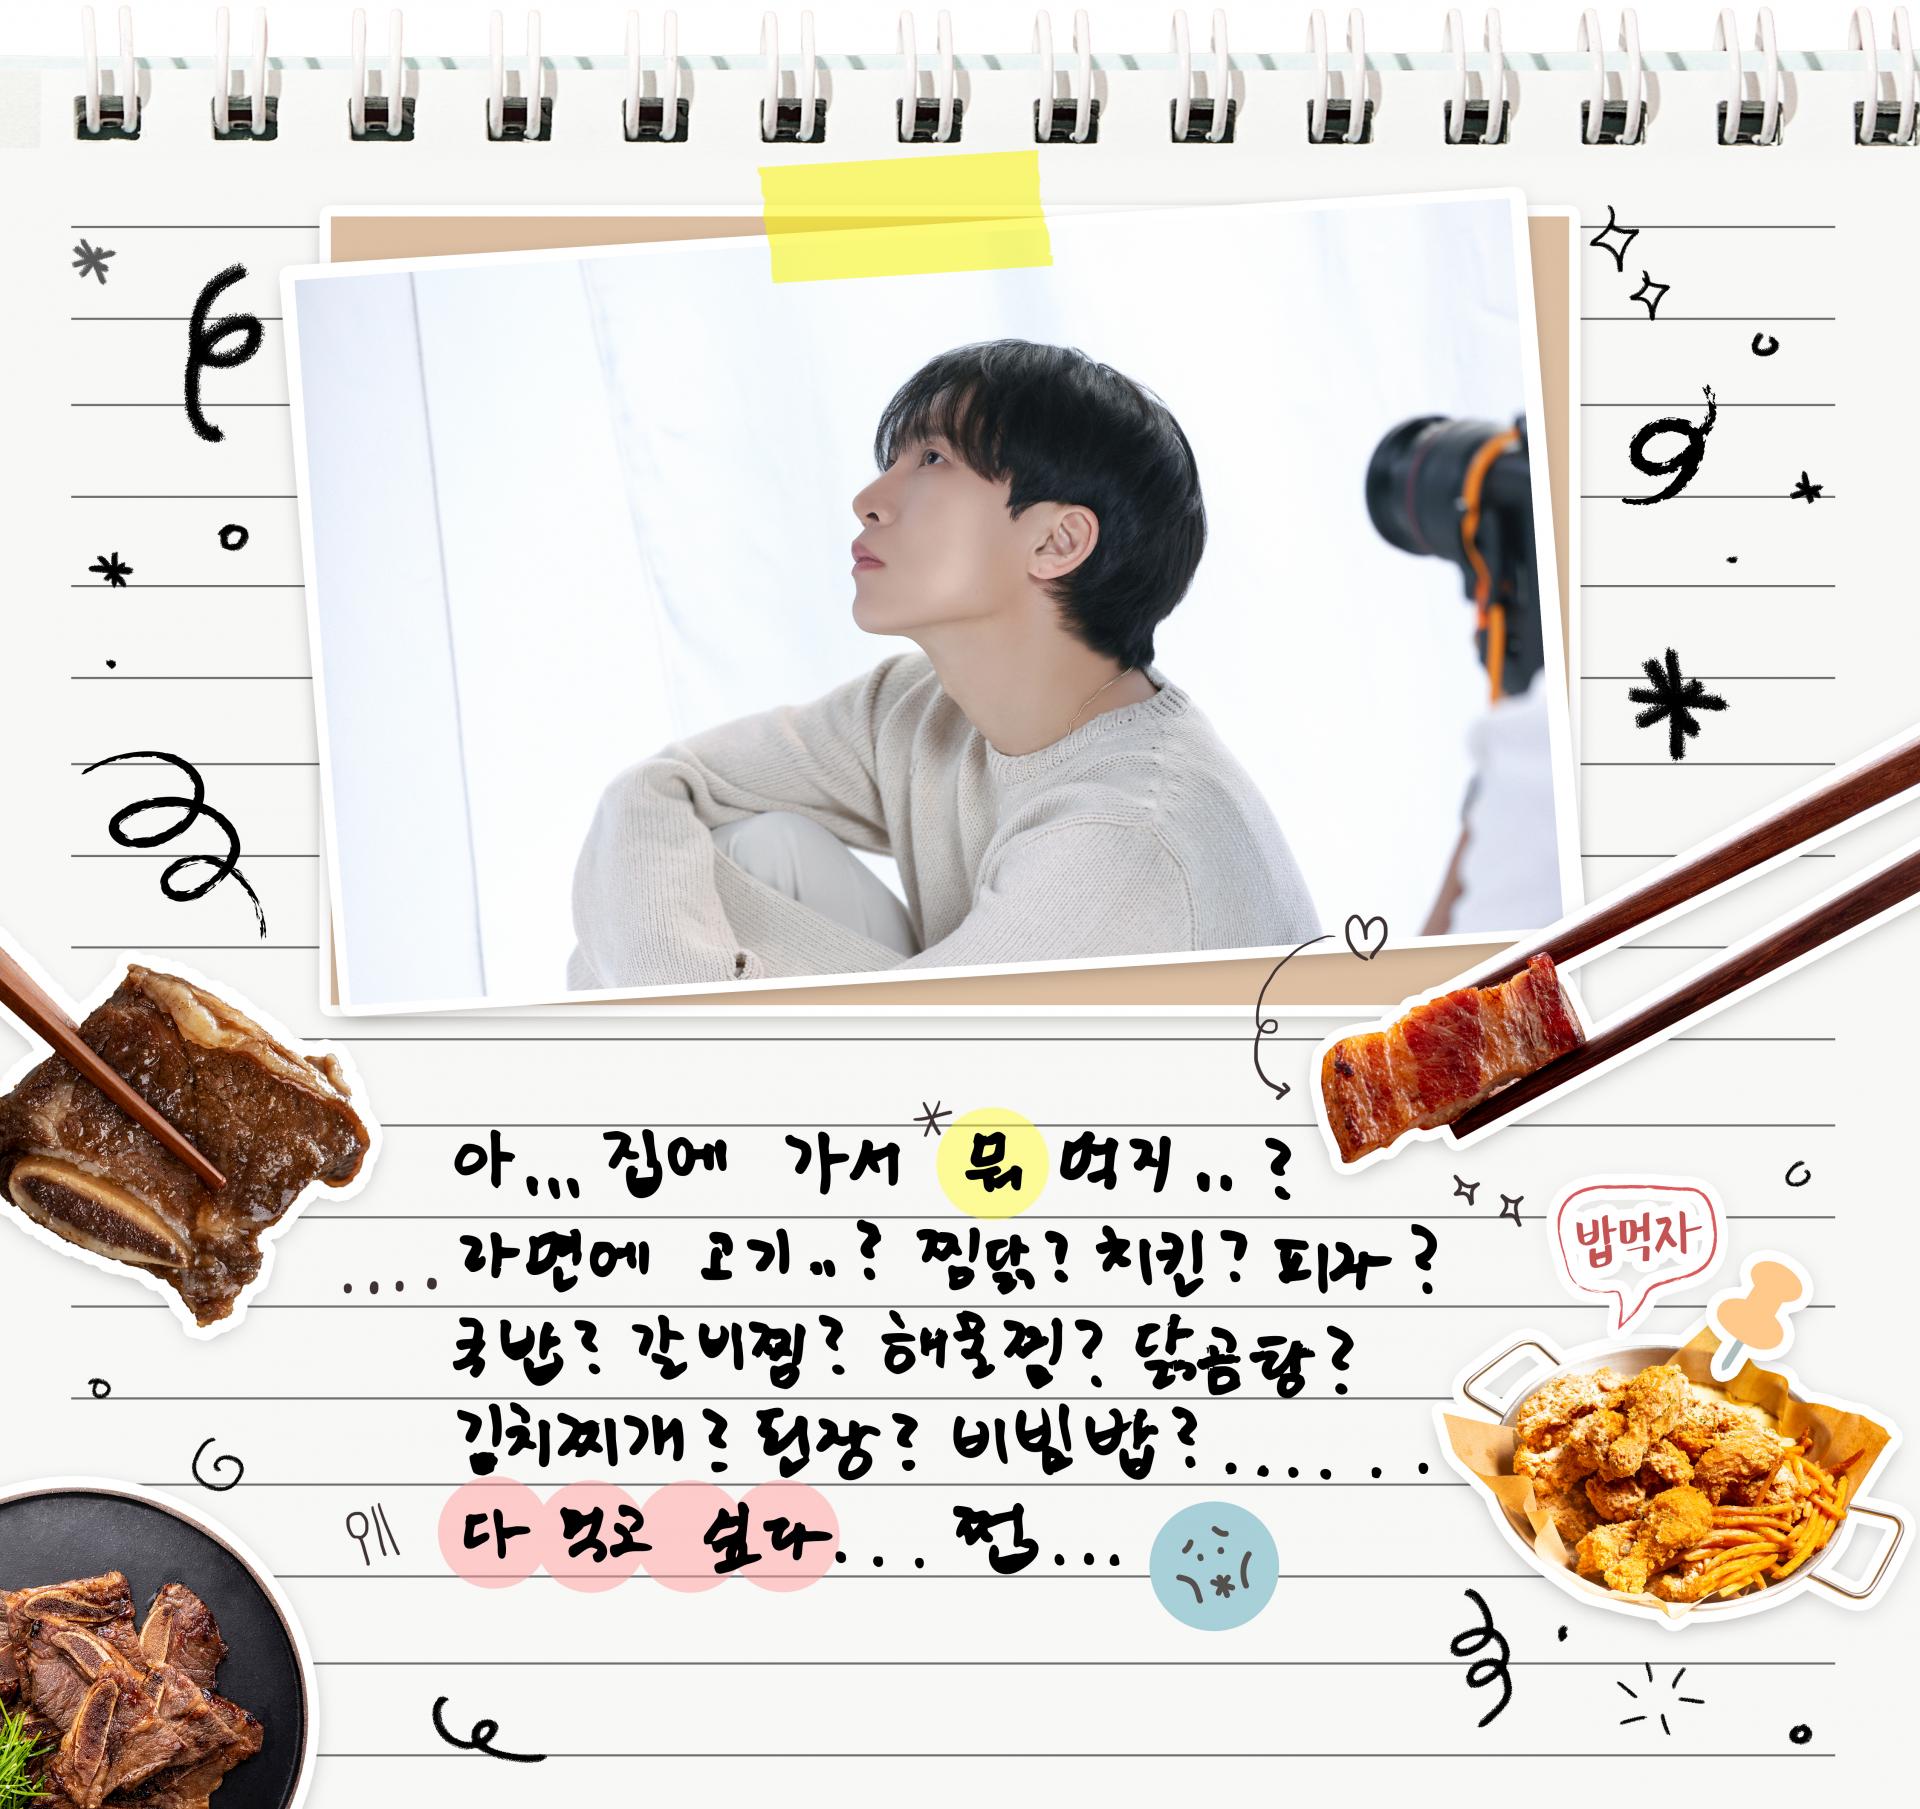 아... 집에 가서 뭐 먹지..?
....라면에 고기..? 찜닭? 치킨? 피자?
국밥? 갈비찜? 해물찜? 닭곰탕?
김치찌개? 된장? 비빔밥?......
다 먹고 싶다... 쩝...
밥먹자